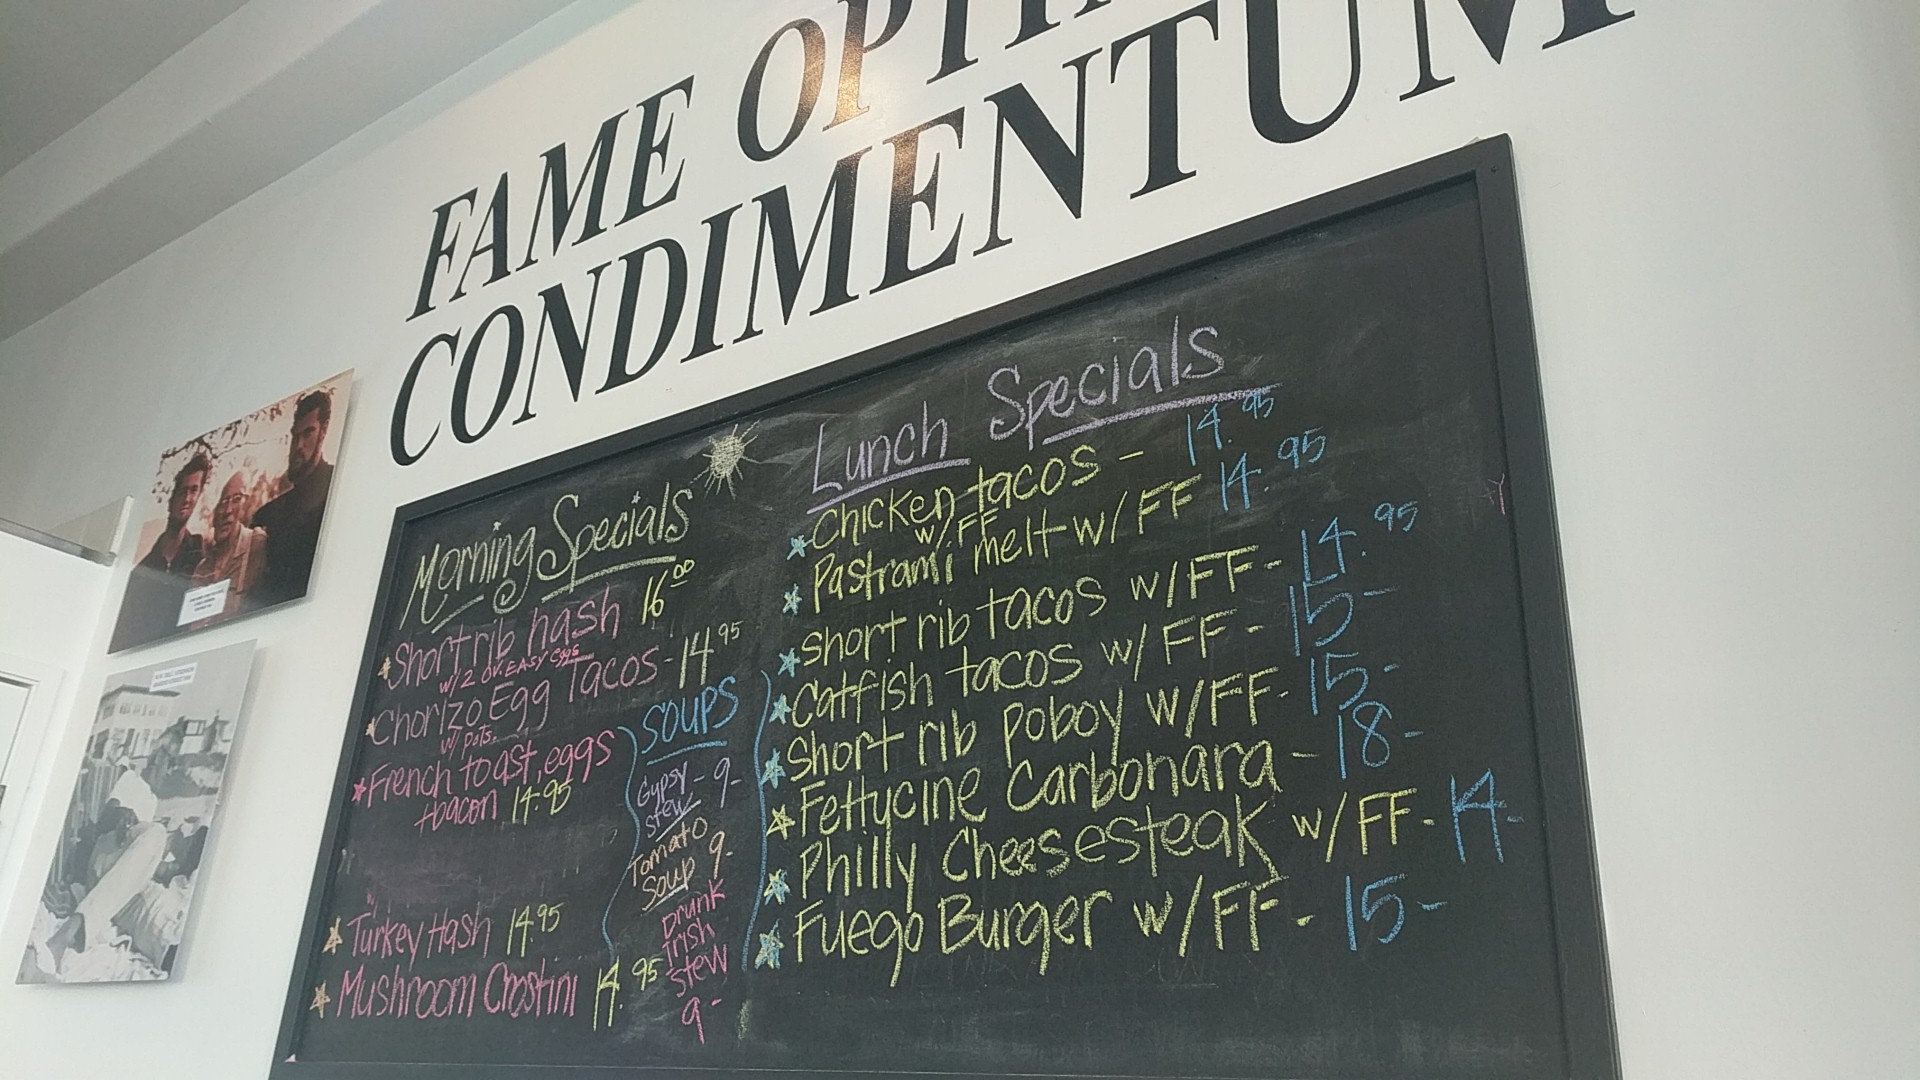 FAME
CONDIMENTUM
Morning Specials
Short rib hash 16.00
w/ 2 OV. EASY eggs
Chorizo Egg Tacos - 14.95
w/ pots.
French toast, eggs
+bacon 14.95
Turkey Hash 14.95
Mushroom Crostini 14.95
SOUPS
Gypsy
stew - 9-
Tomato
Soup 9-
Drunk
Irish
stew
9-
Lunch Specials
Chicken tacos - 14.95
w/FF
Pastrami melt w/ FF 14.95
Short rib tacos w/FF - 14.95
Catfish tacos w/ FF - 15-
Short rib poboy w/FF - 15-
Fettucine Carbonara - 18-
Philly Cheesesteak w/FF - 14-
Fuego Burger w/FF - 15-